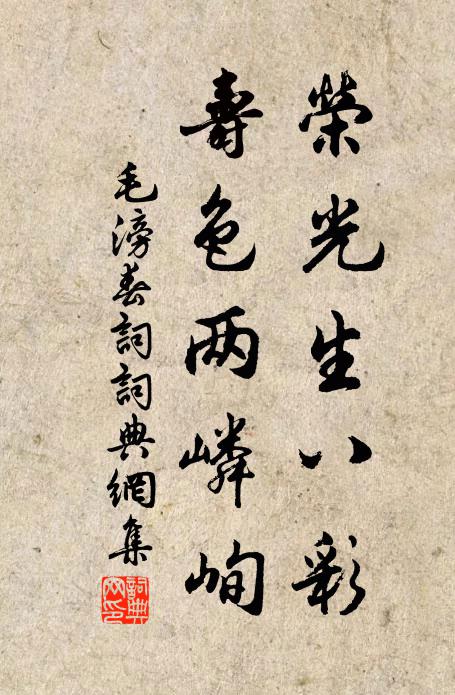 榮光生八彩
壽色兩嶙峋
毛滂春詞詞典網集
詞典網印